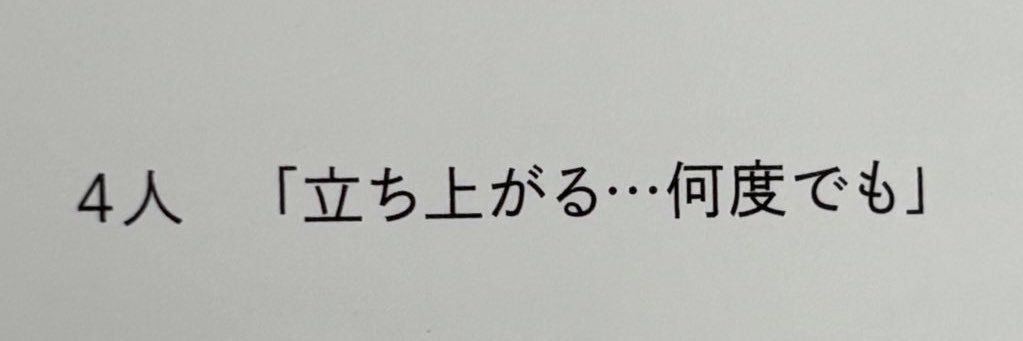 4人　「立ち上がる…何度でも」